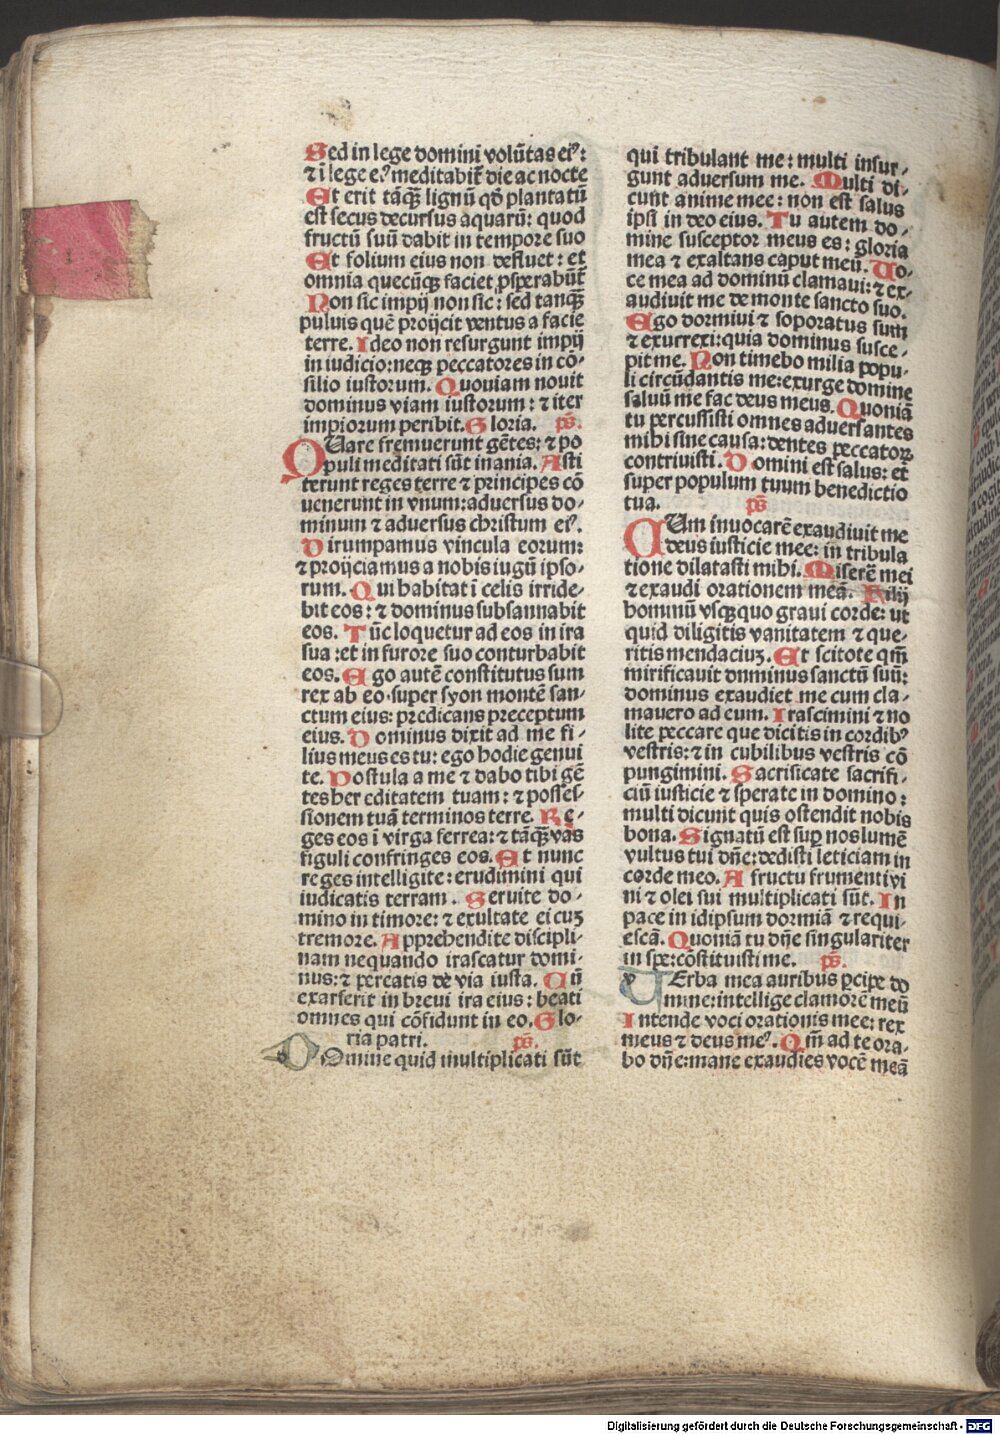 Sed in lege domini volūtas eiꝰ:
⁊ ī lege eꝰ meditabit̄ die ac nocte
Et erit tāq̄ꝫ lignū qd̄ plantatū
est secus decursus aquarū: quod
fructū suū dabit in tempore suo
Et folium eius non defluet: et
omnia quecūqꝫ faciet ꝓsperabūt̄
Non sic impij non sic: sed tanq̄ꝫ
puluis quē proijcit ventus a facie
terre. Ideo non resurgunt impij
in iudicio: neqꝫ peccatores in cō-
silio iustorum. Quoviam nouit
dominus viam iustorum: ⁊ iter
impiorum peribit. Gloria. ps̄.
QUare fremuerunt gētes: ⁊ po
puli meditati sūt inania. Asti
terunt reges terre ⁊ principes cō
uenerunt in vnum: adversus do-
minum ⁊ adversus christum eiꝰ.
Dirumpamus vincula eorum:
⁊ proijciamus a nobis iugū ipso-
rum. Qui habitat ī celis irride-
bit eos: ⁊ dominus subsannabit
eos. Tūc loquetur ad eos in ira
sua: et in furore suo conturbabit
eos. Ego autē constitutus sum
rex ab eo super syon montē san-
ctum eius: predicans preceptum
eius. Dominus dixit ad me fi-
lius meus es tu: ego hodie genui
te. Postula a me ⁊ dabo tibi gē
tes hereditatem tuam: ⁊ posses-
sionem tuā terminos terre. Re-
ges eos ī virga ferrea: ⁊ tāq̄ꝫ vas
figuli confringes eos. Et nunc
reges intelligite: erudimini qui
iudicatis terram. Seruite do-
mino in timore: ⁊ exultate ei cuꝫ
tremore. Apprehendite discipli-
nam nequando irascatur domi-
nus: ⁊ pereatis de via iusta. Cū
exarserit in brevi ira eius: beati
omnes qui cōfidunt in eo. Glo-
ria patri. ps̄.
Domine quid multiplicati sūt
qui tribulant me: multi insur-
gunt adversum me. Multi di-
cunt anime mee: non est salus
ipsi in deo eius. Tu autem do-
mine susceptor meus es: gloria
mea ⁊ exaltans caput meū. Vo-
ce mea ad dominū clamavi: ⁊ ex-
audiuit me de monte sancto suo.
Ego dormivi ⁊ soporatus sum
⁊ exurrexi: quia dominus susce-
pit me. Non timebo milia popu-
li circūdantis me: exurge domine
saluū me fac deus meus. Quoniā
tu percussisti omnes adversantes
mihi sine causa: dentes peccatoꝝ
contrivisti. Domini est salus: et
super populum tuum benedictio
tua. ps̄
CUm inuocarē exaudiuit me
deus iusticie mee: in tribula
tione dilatasti mihi. Miserē mei
⁊ exaudi orationem meā. Filij
hominū vsqꝫ quo graui corde: ut
quid diligitis vanitatem ⁊ que-
ritis mendaciuꝫ. Et scitote qm̄
mirificauit dnminus sanctū suū:
dominus exaudiet me cum cla-
mauero ad eum. Irascimini ⁊ no
lite peccare que dicitis in cordibꝰ
vestris: ⁊ in cubilibus vestris cō
pungimini. Sacrificate sacrifi-
ciū iusticie ⁊ sperate in domino:
multi dicunt quis ostendit nobis
bona. Signatū est suꝑ nos lumē
vultus tui dn̄e: dedisti leticiam in
corde meo. A fructu frumenti vi
ni ⁊ olei sui multiplicati sūt. In
pace in idipsum dormiā ⁊ requi-
escā. Quoniā tu dn̄e singulariter
in spe: cōstituisti me. ps̄.
VErba mea auribus ꝑcipe do
mine: intellige clamorē meū
Intende voci orationis mee: rex
meus ⁊ deus meꝰ. Qm̄ ad te ora-
bo dn̄e: mane exaudies vocē meā
Digitalisierung gefördert durch die Deutsche Forschungsgemeinschaft - DFG